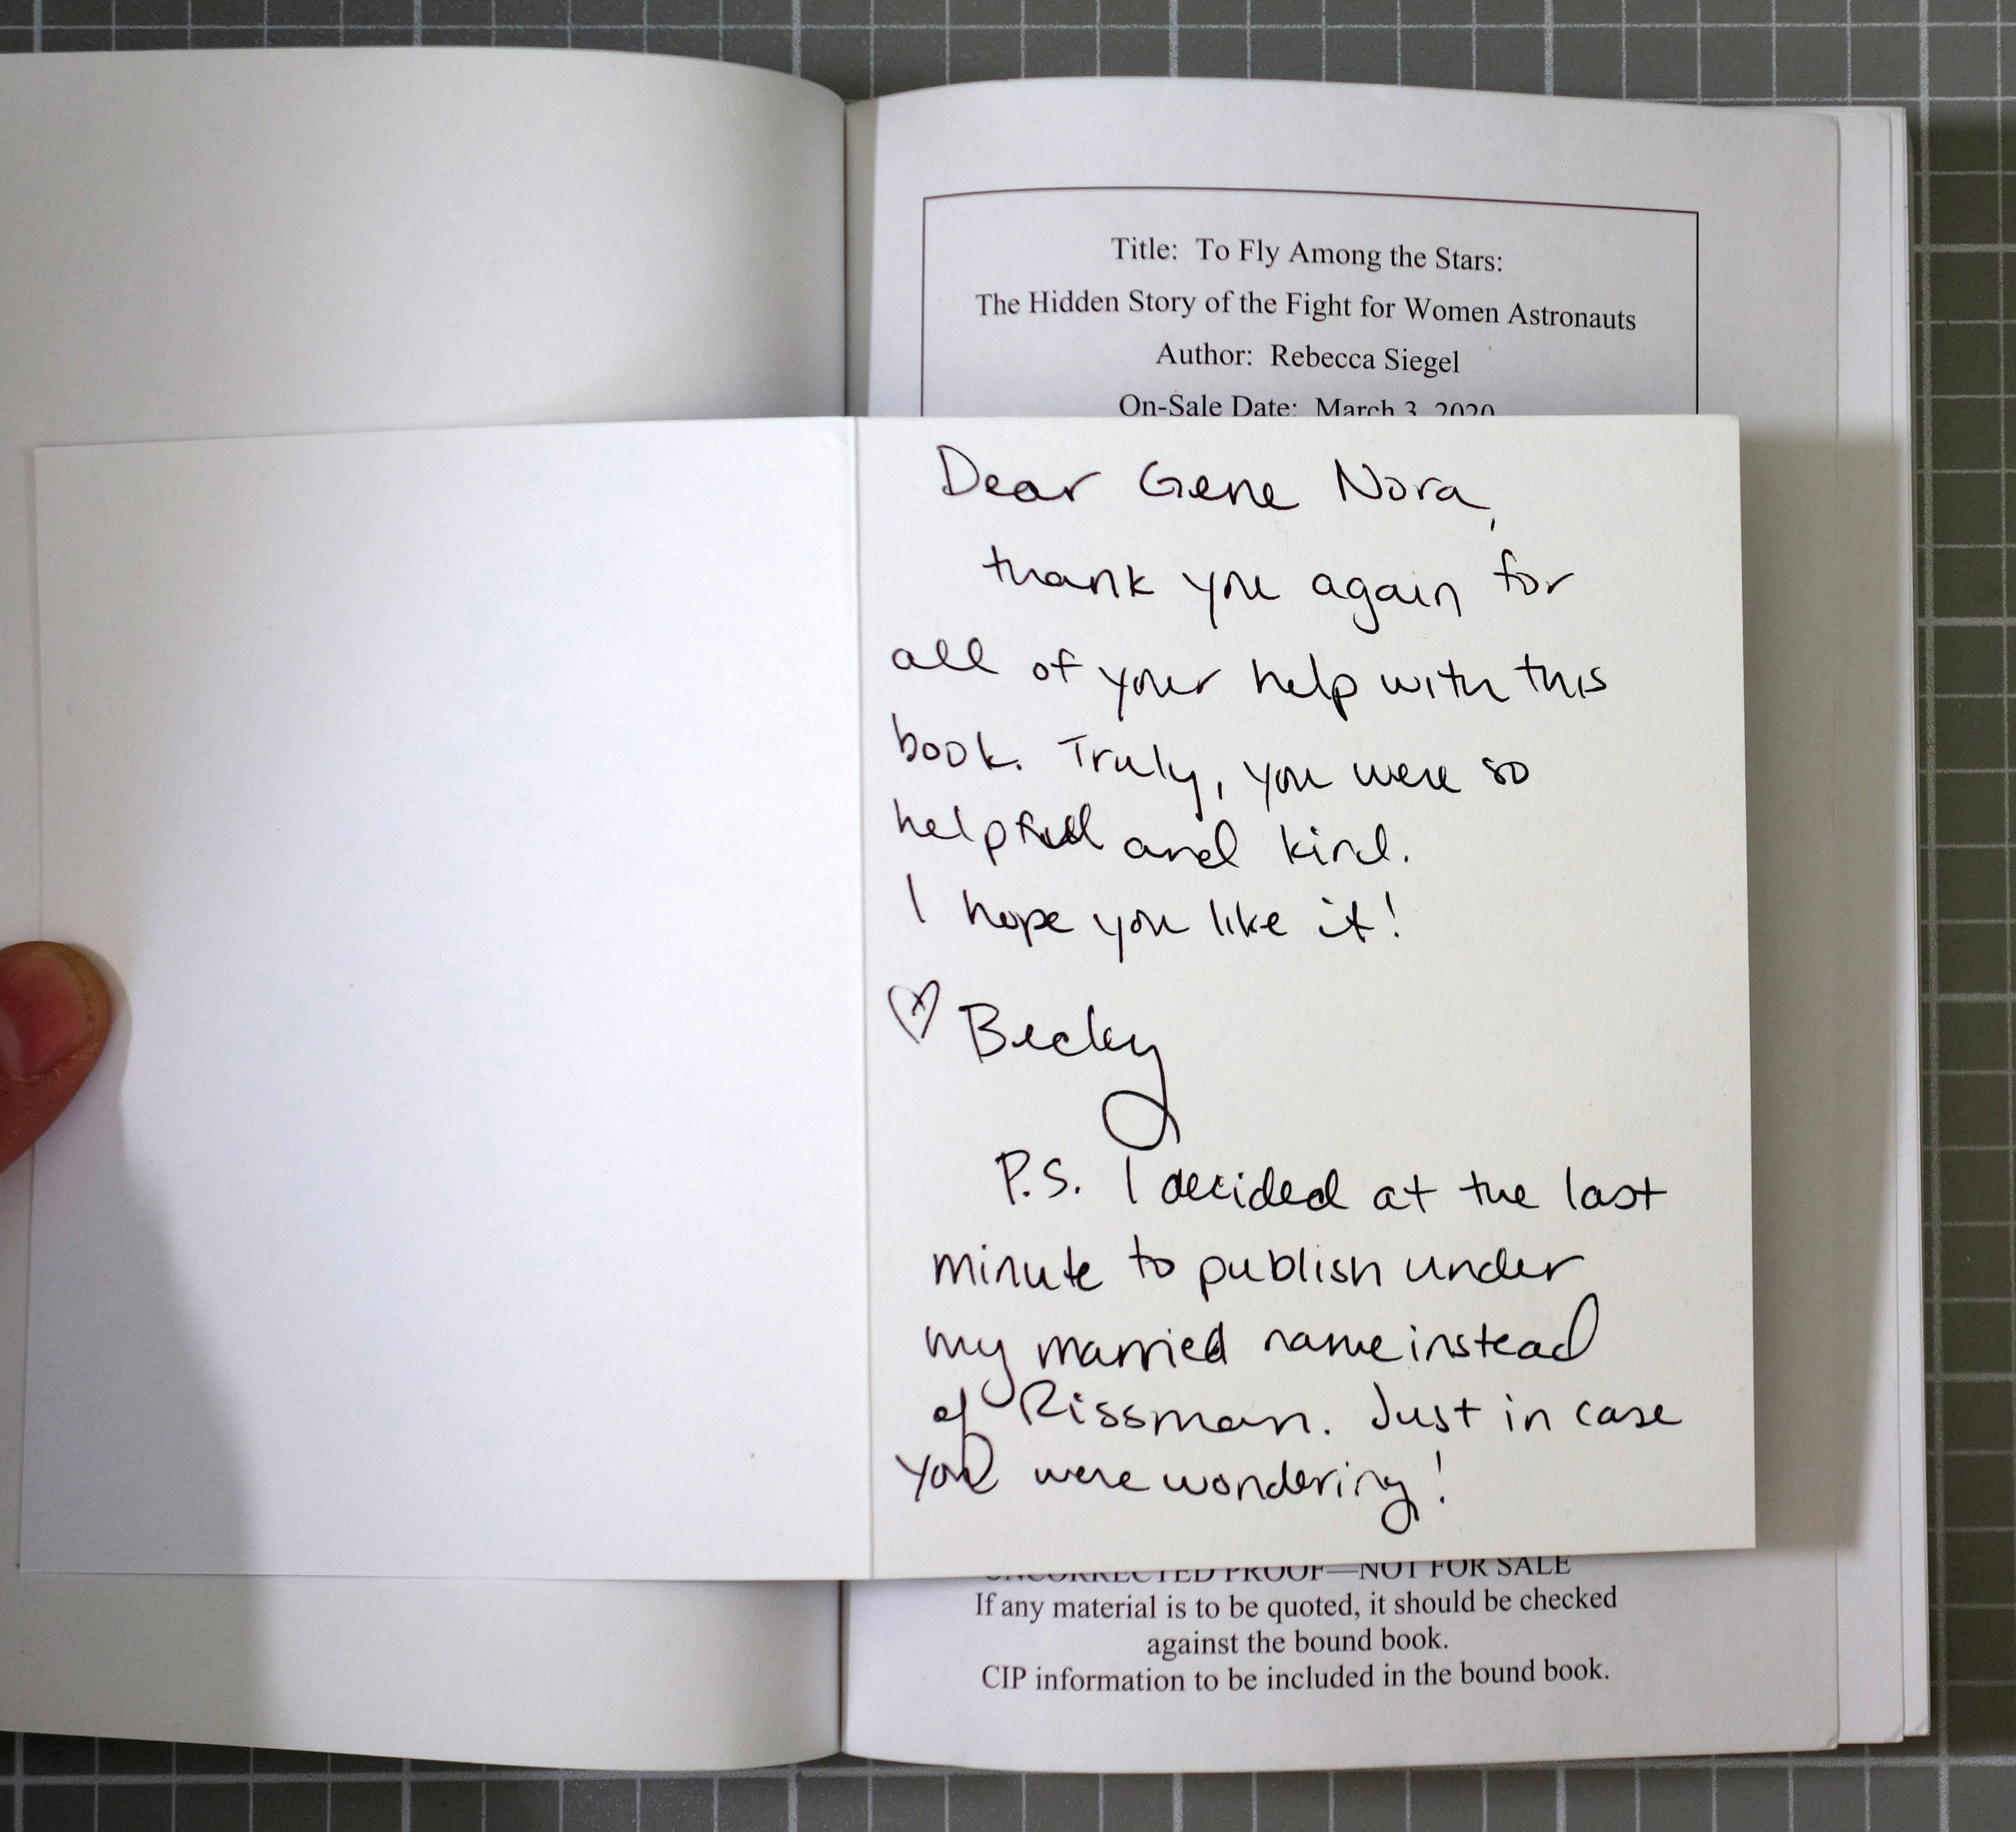 Title: To Fly Among the Stars:
The Hidden Story of the Fight for Women Astronauts
Author: Rebecca Siegel
On-Sale Date: March 3, 2020
Dear Gene Nora,
thank you again for
all of your help with this
book. Truly, you were so
helpful and kind.
I hope you like it!
♡ Becky
P.S. I decided at the last
minute to publish under
my married name instead
of Rissman. Just in case
you were wondering!
UNCORRECTED PROOF—NOT FOR SALE
If any material is to be quoted, it should be checked
against the bound book.
CIP information to be included in the bound book.